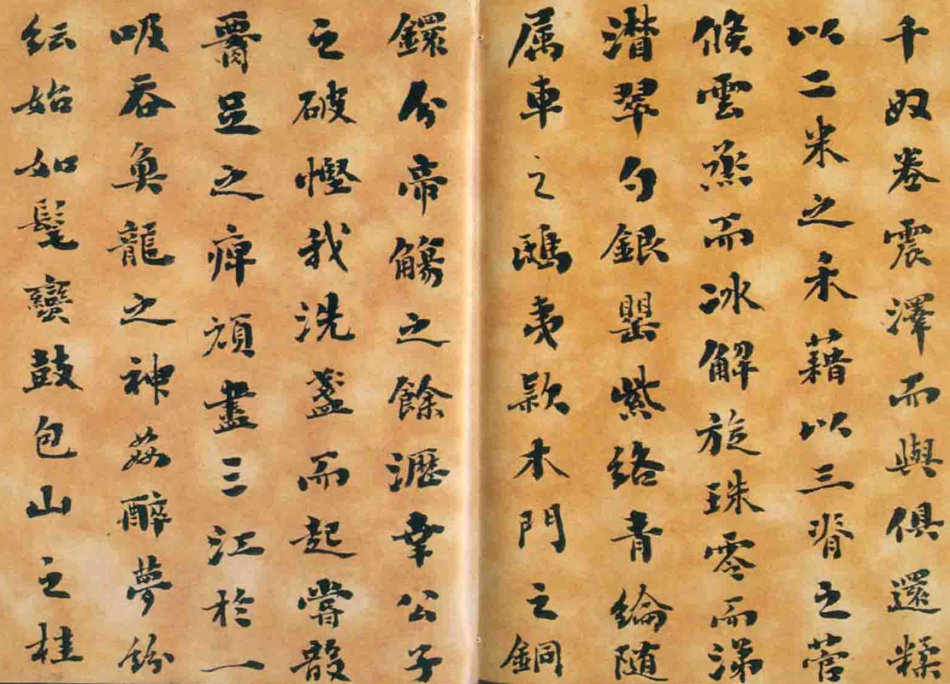 千奴卷震澤而與俱還糅
以二米之禾藉以三脊之菅
倏雲烝而冰解旋珠零而涕
潸翠勺銀罌紫絡青綸隨
属車之鴟夷款木門之銅
鐶分帝觴之餘瀝幸公子
之破慳我洗盞而起嘗散
腰足之痹頑盡三江於一
吸吞魚龍之神姦醉夢紛
紜始如髦蠻鼓包山之桂